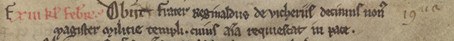 E xiii kl' febr'. Obijt frater Reginaldus de vicherijs decimus non' 19us
magister militie templi. cuius aīa requiescat in pace.